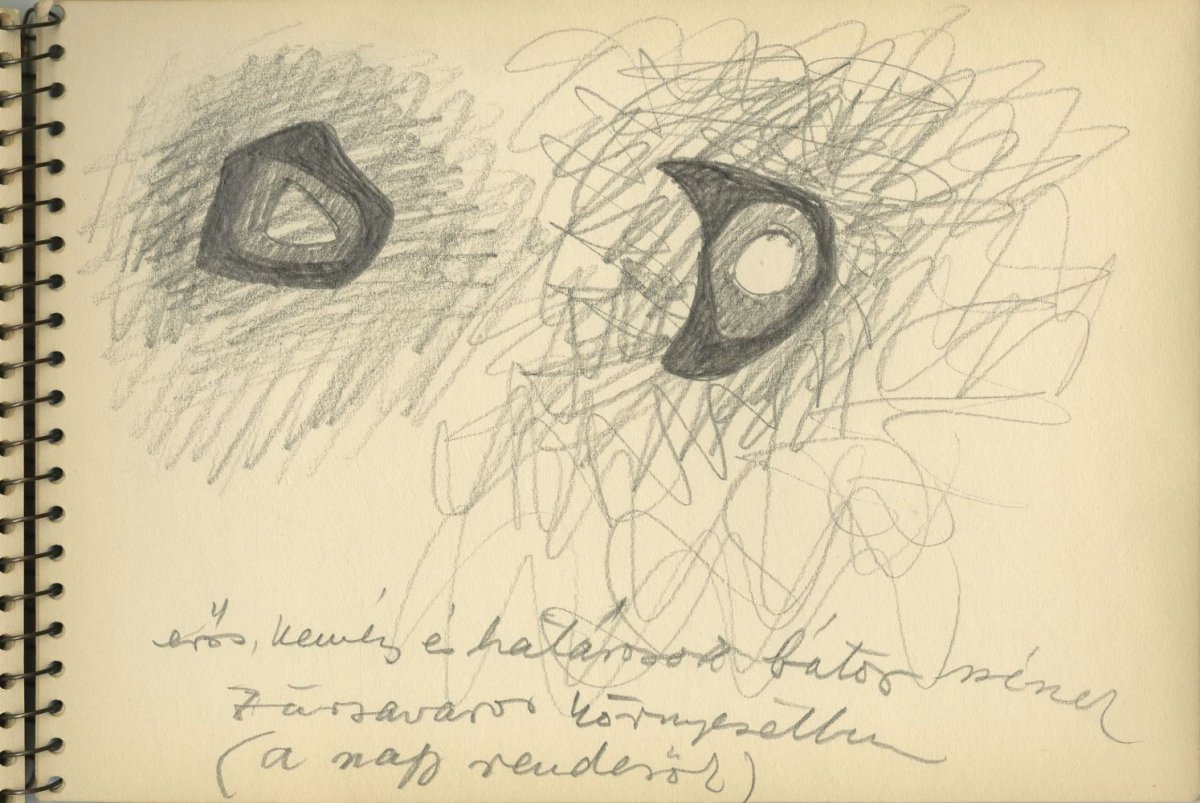 erős, kemény és határozott bátor színek
Zűrzavaros környezetben
(a nap